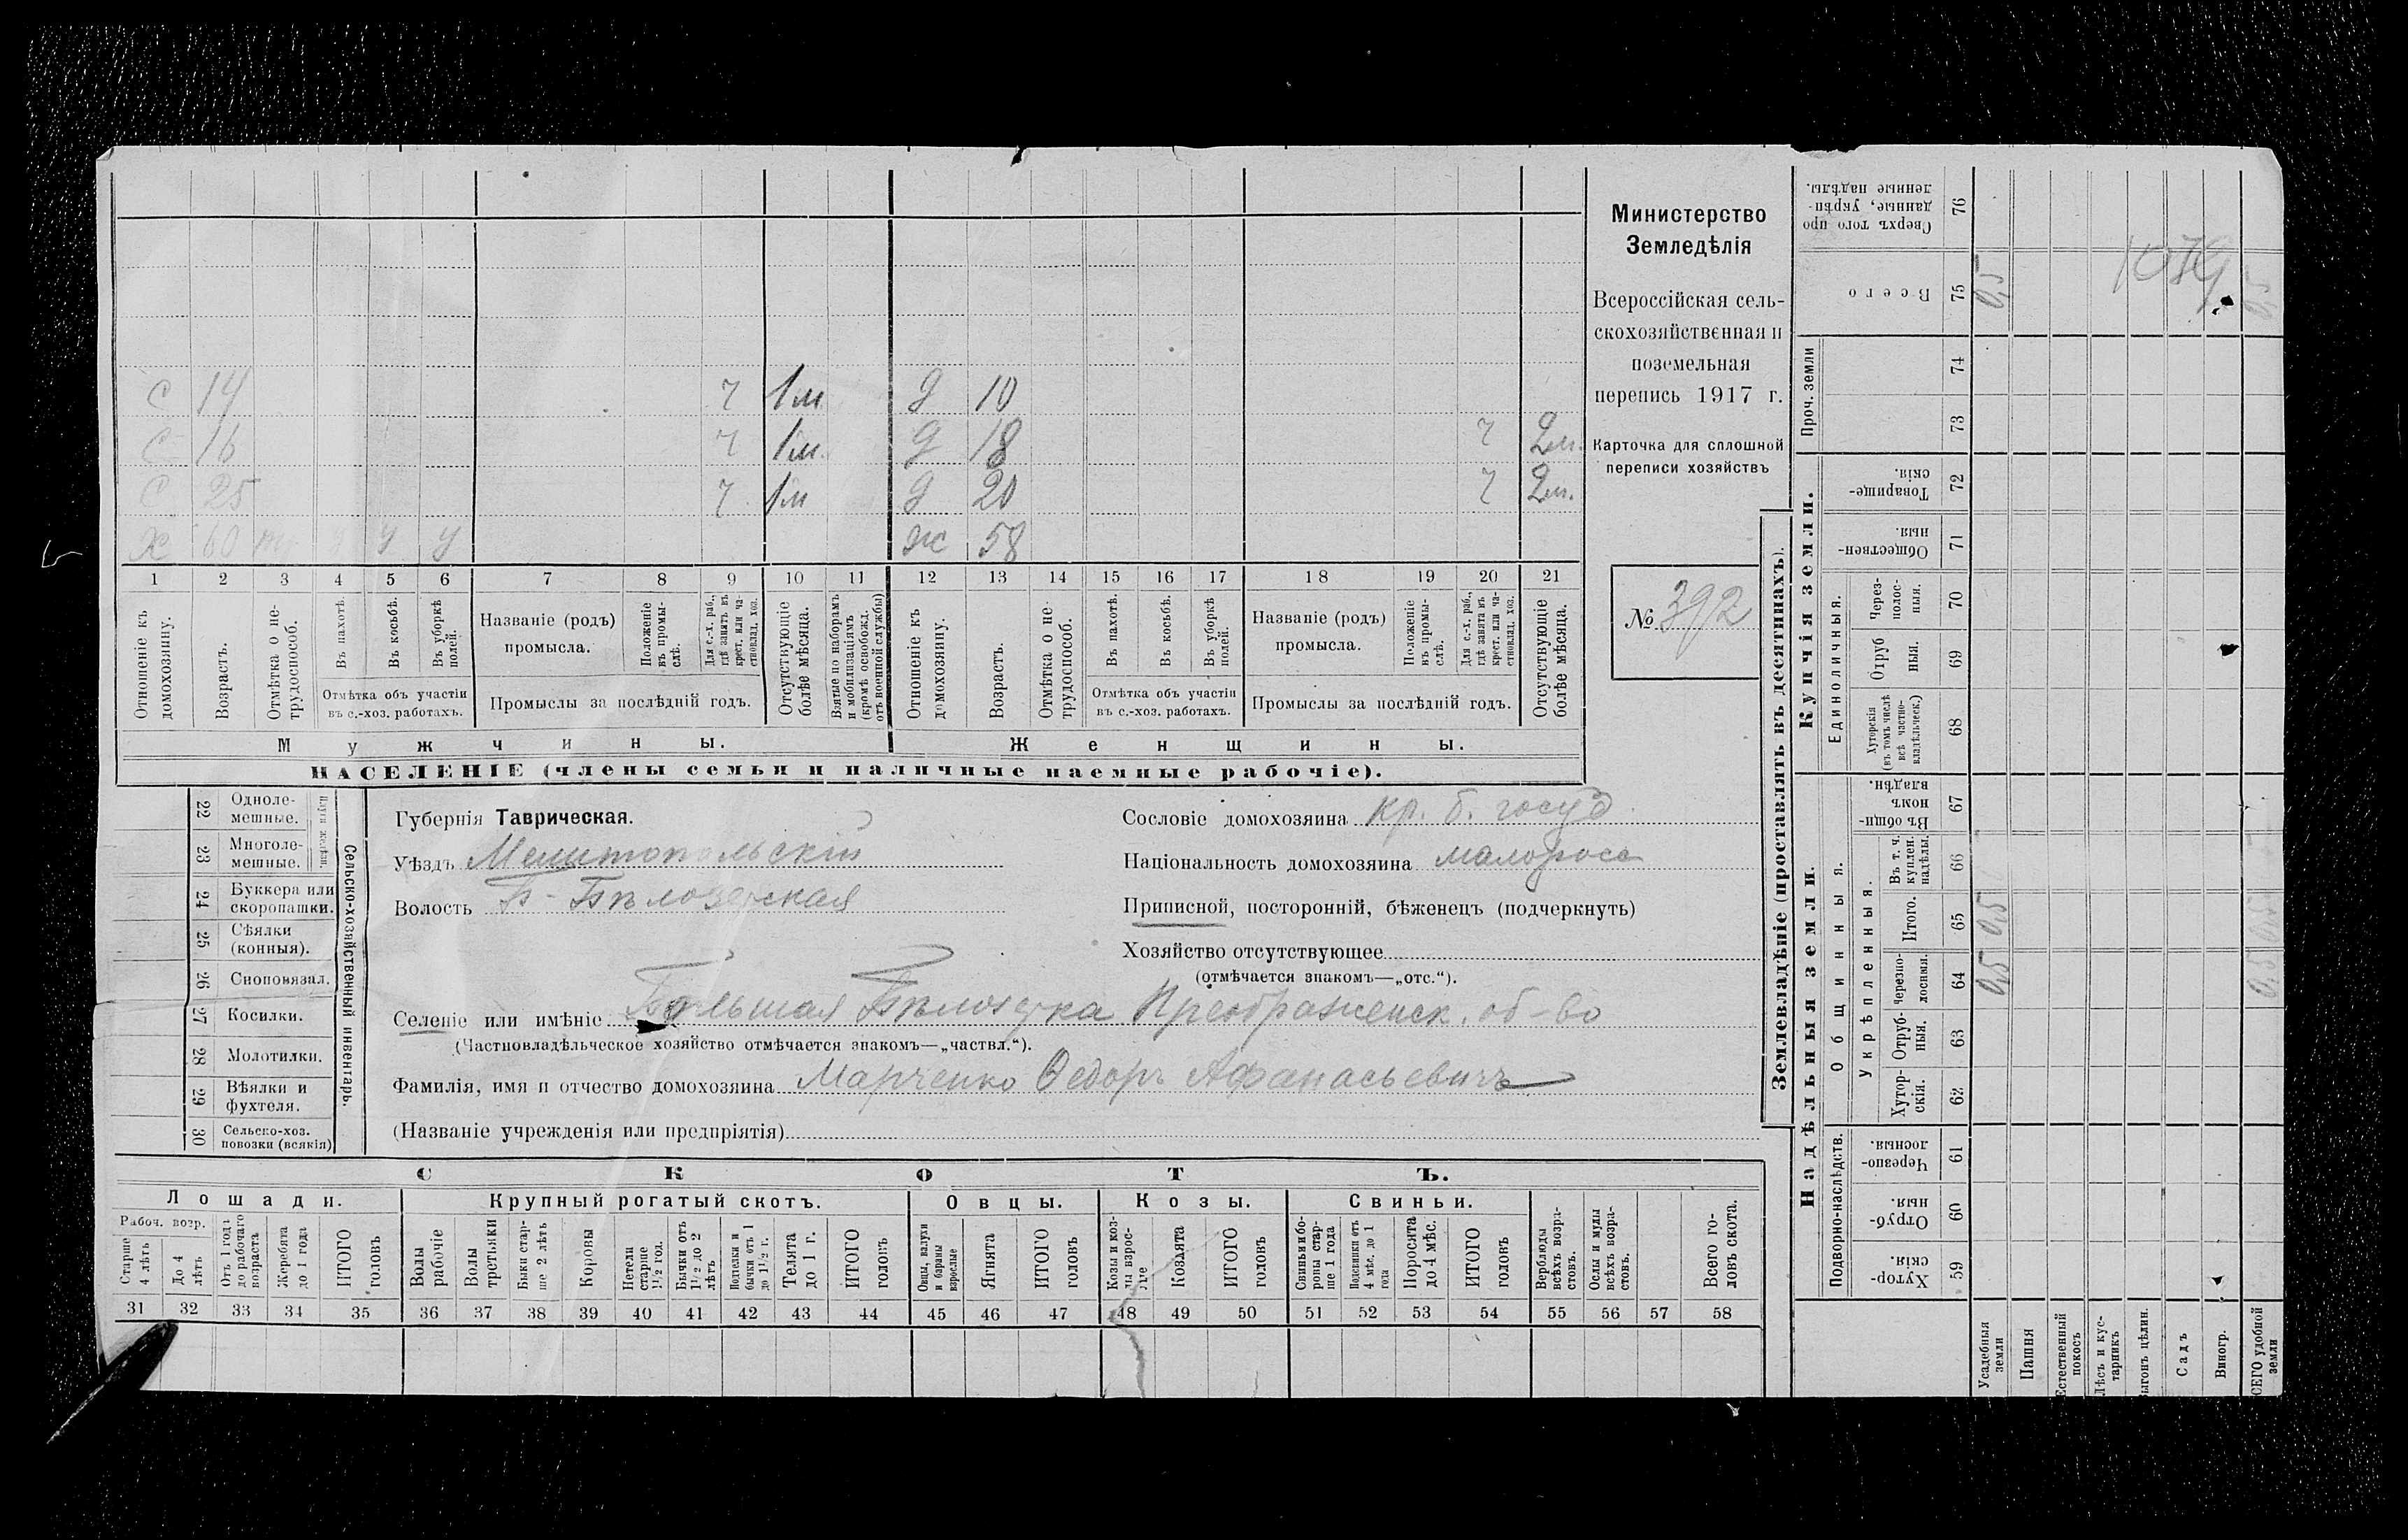 Министерство
Земледѣлія
Всероссійская сель-
скохозяйственная и
поземельная
перепись 1917 г.
Карточка для сплошной
переписи хозяйствъ
№ 392
с 14 ч 1м д 10
с 16 ч 1м. д 18 ч 2м.
с 25 ч 1м д 20 ч 2м.
х 60 у у ж 58
1 2 3 4 5 6 7 8 9 10 11 12 13 14 15 16 17 18 19 20 21
Отношеніе къ домохозяину.
Возрастъ.
Отмѣтка о не-трудоспособ.
Въ пахотѣ.
Въ косьбѣ.
Въ уборкѣ полей.
Отмѣтка объ участіи
въ с.-хоз. работахъ.
Названіе (родъ)
промысла.
Положеніе въ промы-слѣ.
Для с.-х. раб., гдѣ занятъ въ крест. или ча-стновлад. хоз.
Промыслы за послѣдній годъ.
Отсутствующіе болѣе мѣсяца.
Взятые по наборамъ и мобилизаціямъ (кромѣ освобожд. отъ военной службы)
Отношеніе къ домохозяину.
Возрастъ.
Отмѣтка о не-трудоспособ.
Въ пахотѣ.
Въ косьбѣ.
Въ уборкѣ полей.
Отмѣтка объ участіи
въ с.-хоз. работахъ.
Названіе (родъ)
промысла.
Положеніе въ промы-слѣ.
Для с.-х. раб., гдѣ занята въ крест. или ча-стновлад. хоз.
Промыслы за послѣдній годъ.
Отсутствующіе болѣе мѣсяца.
Мужчины. Женщины.
НАСЕЛЕНІЕ (члены семьи и наличные наемные рабочіе).
Сельско-хозяйственный инвентарь.
22 Одноле-мешные.
23 Многоле-мешные.
24 Буккера или скоропашки.
25 Сѣялки (конныя).
26 Сноповязал.
27 Косилки.
28 Молотилки.
29 Вѣялки и фухтеля.
30 Сельско-хоз. повозки (всякія)
Губернія Таврическая.
Уѣздъ Мелитопольскій
Волость Б-Бѣлозерская
Сословіе домохозяина кр. б. госуд.
Національность домохозяина малоросс
Приписной, посторонній, бѣженецъ (подчеркнуть)
Хозяйство отсутствующее
(отмѣчается знакомъ—„отс.“).
Селеніе или имѣніе Большая Бѣлозерка Преображенск. об-во
(Частновладѣльческое хозяйство отмѣчается знакомъ—„частвл.“).
Фамилія, имя и отчество домохозяина Марченко Ѳедоръ Афанасьевичъ
(Названіе учрежденія или предпріятія)
СКОТЪ.
Лошади. Крупный рогатый скотъ. Овцы. Козы. Свиньи.
Рабоч. возр.
Старше 4 лѣтъ
До 4 лѣтъ
Отъ 1 года до рабочаго возраста
Жеребята до 1 года
ИТОГО головъ
Волы рабочіе
Волы третьяки
Быки стар-ше 2 лѣтъ
Коровы
Нетели старше 1½ год.
Бычки отъ 1½ до 2 лѣтъ
Телята до 1 г.
ИТОГО головъ
Овцы, валухи и бараны взрослые
Ягнята
ИТОГО головъ
Козы и коз-лы взрос-лые
Козлята
ИТОГО головъ
Свиньи и бо-ровы стар-ше 1 года
Подсвинки отъ 4 мѣс. до 1 года
Поросята до 4 мѣс.
ИТОГО головъ
Верблюды всѣхъ возра-стовъ.
Ослы и мулы всѣхъ возра-стовъ.
Всего го-ловъ скота.
31 32 33 34 35 36 37 38 39 40 41 42 43 44 45 46 47 48 49 50 51 52 53 54 55 56 57 58
Землевладѣніе (проставлять въ десятинахъ).
Надѣльныя земли.
Купчія земли.
Проч. земли
Подворно-наслѣдств.
Общинныя.
Укрѣпленныя.
Единоличныя.
Сверхъ того про-данные, укрѣп-ленные надѣлы. 76
Всего 75
74
73
Товарище-скія. 72
Обществен-ныя. 71
Через-полос-ныя. 70
Отруб-ныя. 69
Хуторскія (въ томъ числѣ всѣ частно-владѣльческ.) 68
Въ общин-номъ владѣн. 67
Въ т. ч. куплен. надѣлы. 66
Итого. 65
Черезпо-лосныя. 64
Отруб-ныя. 63
Хутор-скія. 62
Черезпо-лосныя. 61
Отруб-ныя. 60
Хутор-скія. 59
Усадебныя земли 0,5 0,5 0,5
Пашня
Естественный покосъ
Лѣсъ и кус-тарникъ
Выгонъ цѣлин.
Садъ
Виногр.
ВСЕГО удобной земли 0,5 0,5 0,5